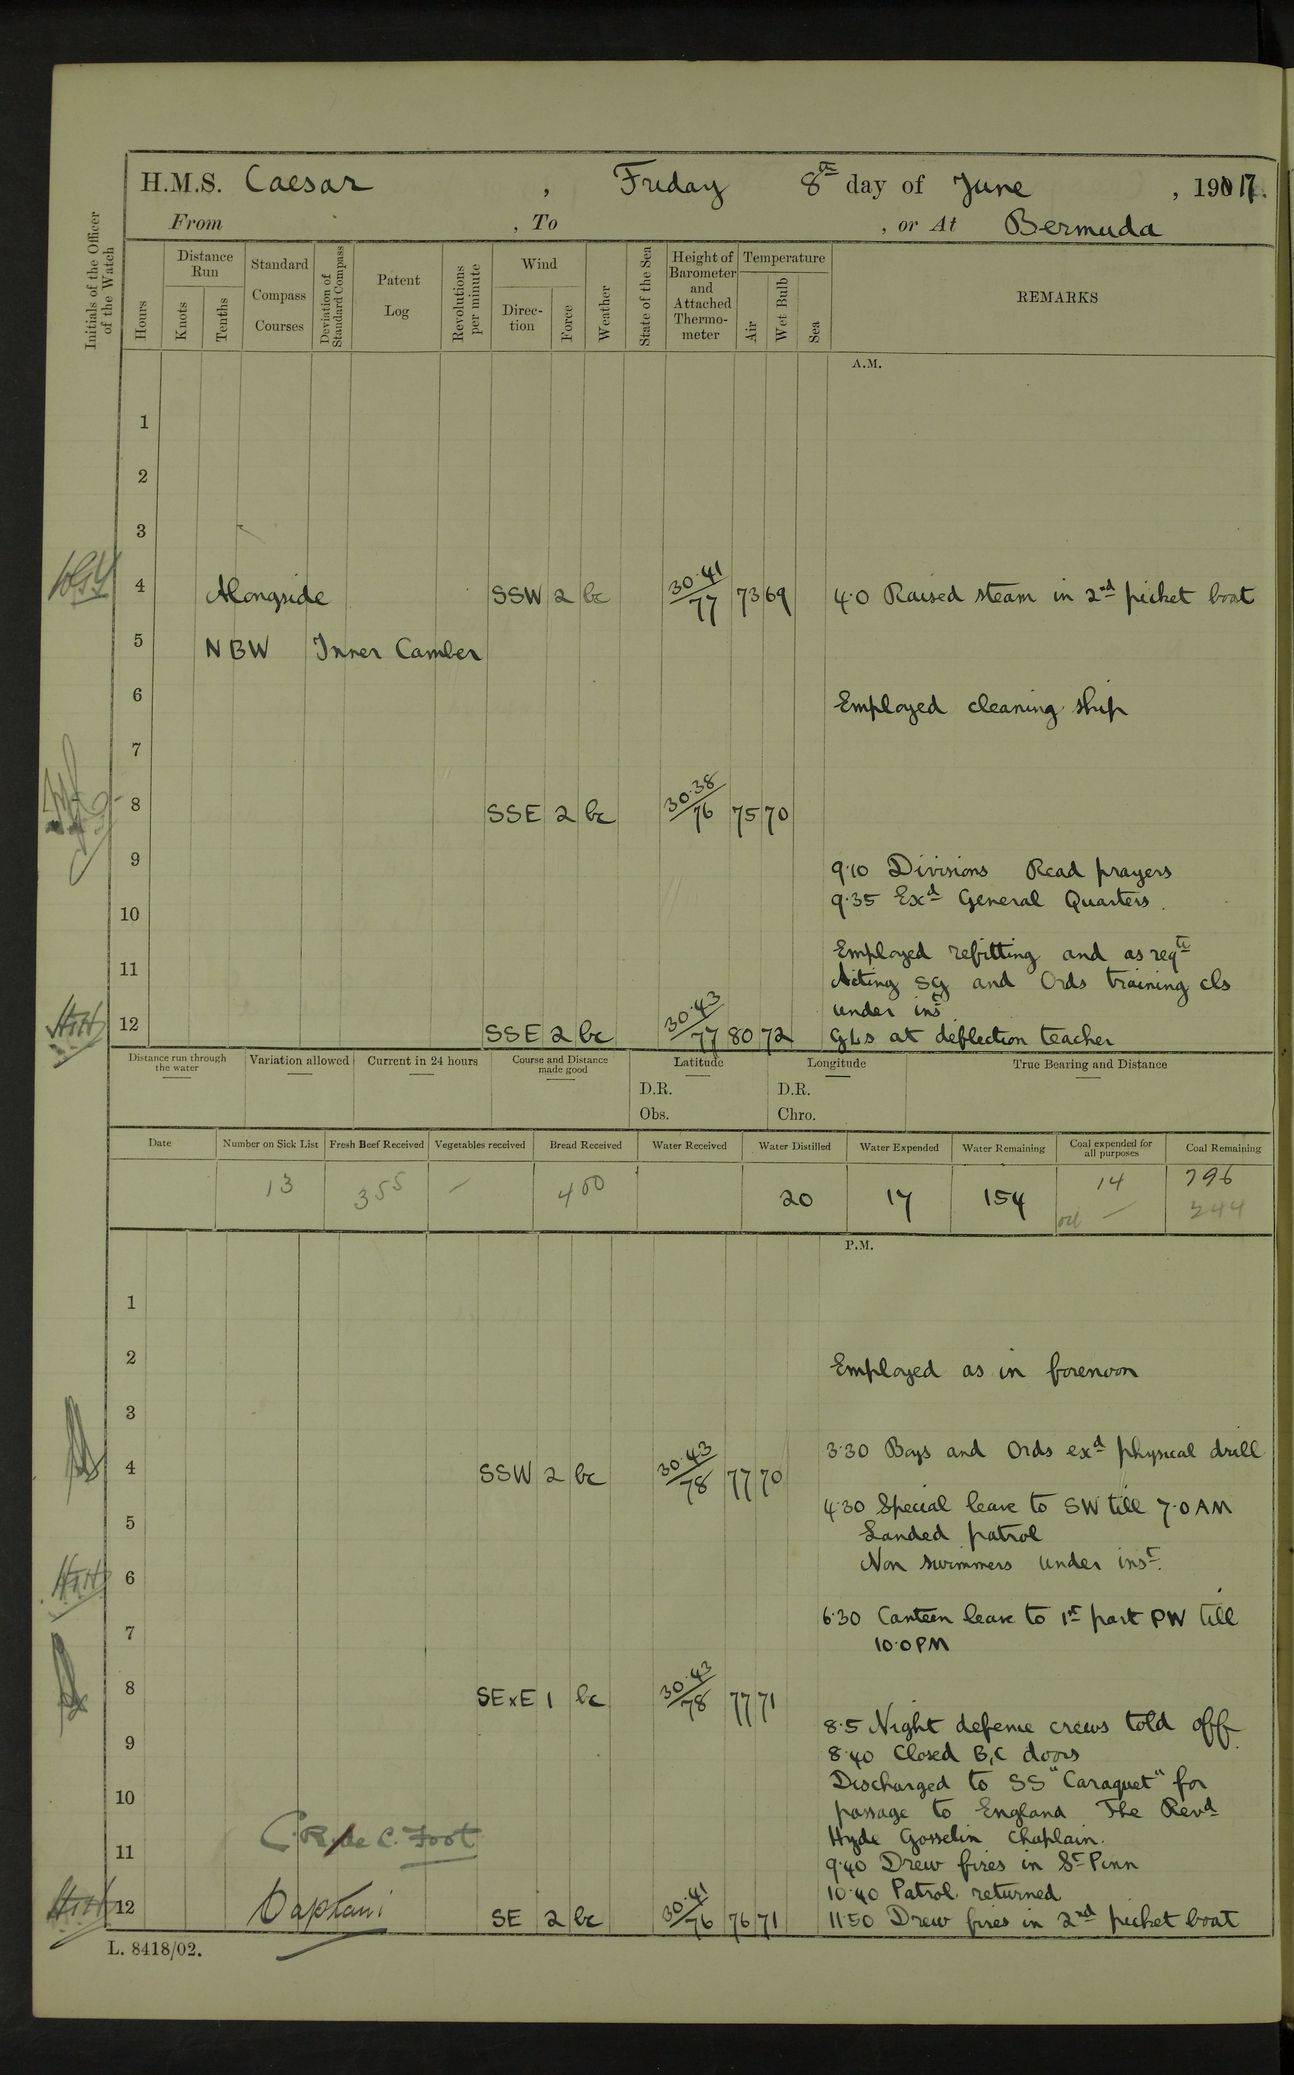 H.M.S. Caesar , Friday 8th day of June , 1917.
From , To , or At Bermuda
Initials of the Officer of the Watch
Hours
Distance Run
Knots
Tenths
Standard Compass Courses
Deviation of Standard Compass
Patent Log
Revolutions per minute
Wind
Direction
Force
Weather
State of the Sea
Height of Barometer and Attached Thermometer
Temperature
Air
Wet Bulb
Sea
REMARKS
A.M.
1
2
3
4 Alongside SSW 2 bc 30.41/77 73 69 4.0 Raised steam in 2nd picket boat
5 NBW Inner Camber
6 Employed cleaning ship
7
8 SSE 2 bc 30.38/76 75 70
9 9.10 Divisions Read prayers
9.35 Exd General Quarters.
10
Employed refitting and as reqte
11 Acting SG and Ords training cls
under inst.
12 SSE 2 bc 30.43/77 80 72 GLs at deflection teacher
Distance run through the water
Variation allowed
Current in 24 hours
Course and Distance made good
Latitude
D.R.
Obs.
Longitude
D.R.
Chro.
True Bearing and Distance
Date
Number on Sick List
Fresh Beef Received
Vegetables received
Bread Received
Water Received
Water Distilled
Water Expended
Water Remaining
Coal expended for all purposes
Coal Remaining
13 355 – 400 20 17 154 14 796
oil – 244
P.M.
1
2 Employed as in forenoon
3
3.30 Boys and Ords exd physical drill
4 SSW 2 bc 30.43/78 77 70
4.30 Special leave to SW till 7.0 AM
5 Landed patrol
Non swimmers under inst.
6
6.30 Canteen leave to 1st part PW till
7 10.0 PM
8 SExE 1 bc 30.43/78 77 71
8.5 Night defence crews told off.
9 8.40 Closed B,C doors
Discharged to SS "Caraquet" for
10 passage to England The Revd
Hyde Gosselin Chaplain.
11 C.R. de C. Foot 9.40 Drew fires in St Pinn
10.40 Patrol returned
12 Captain SE 2 bc 30.41/76 76 71 11.50 Drew fires in 2nd picket boat
L. 8418/02.